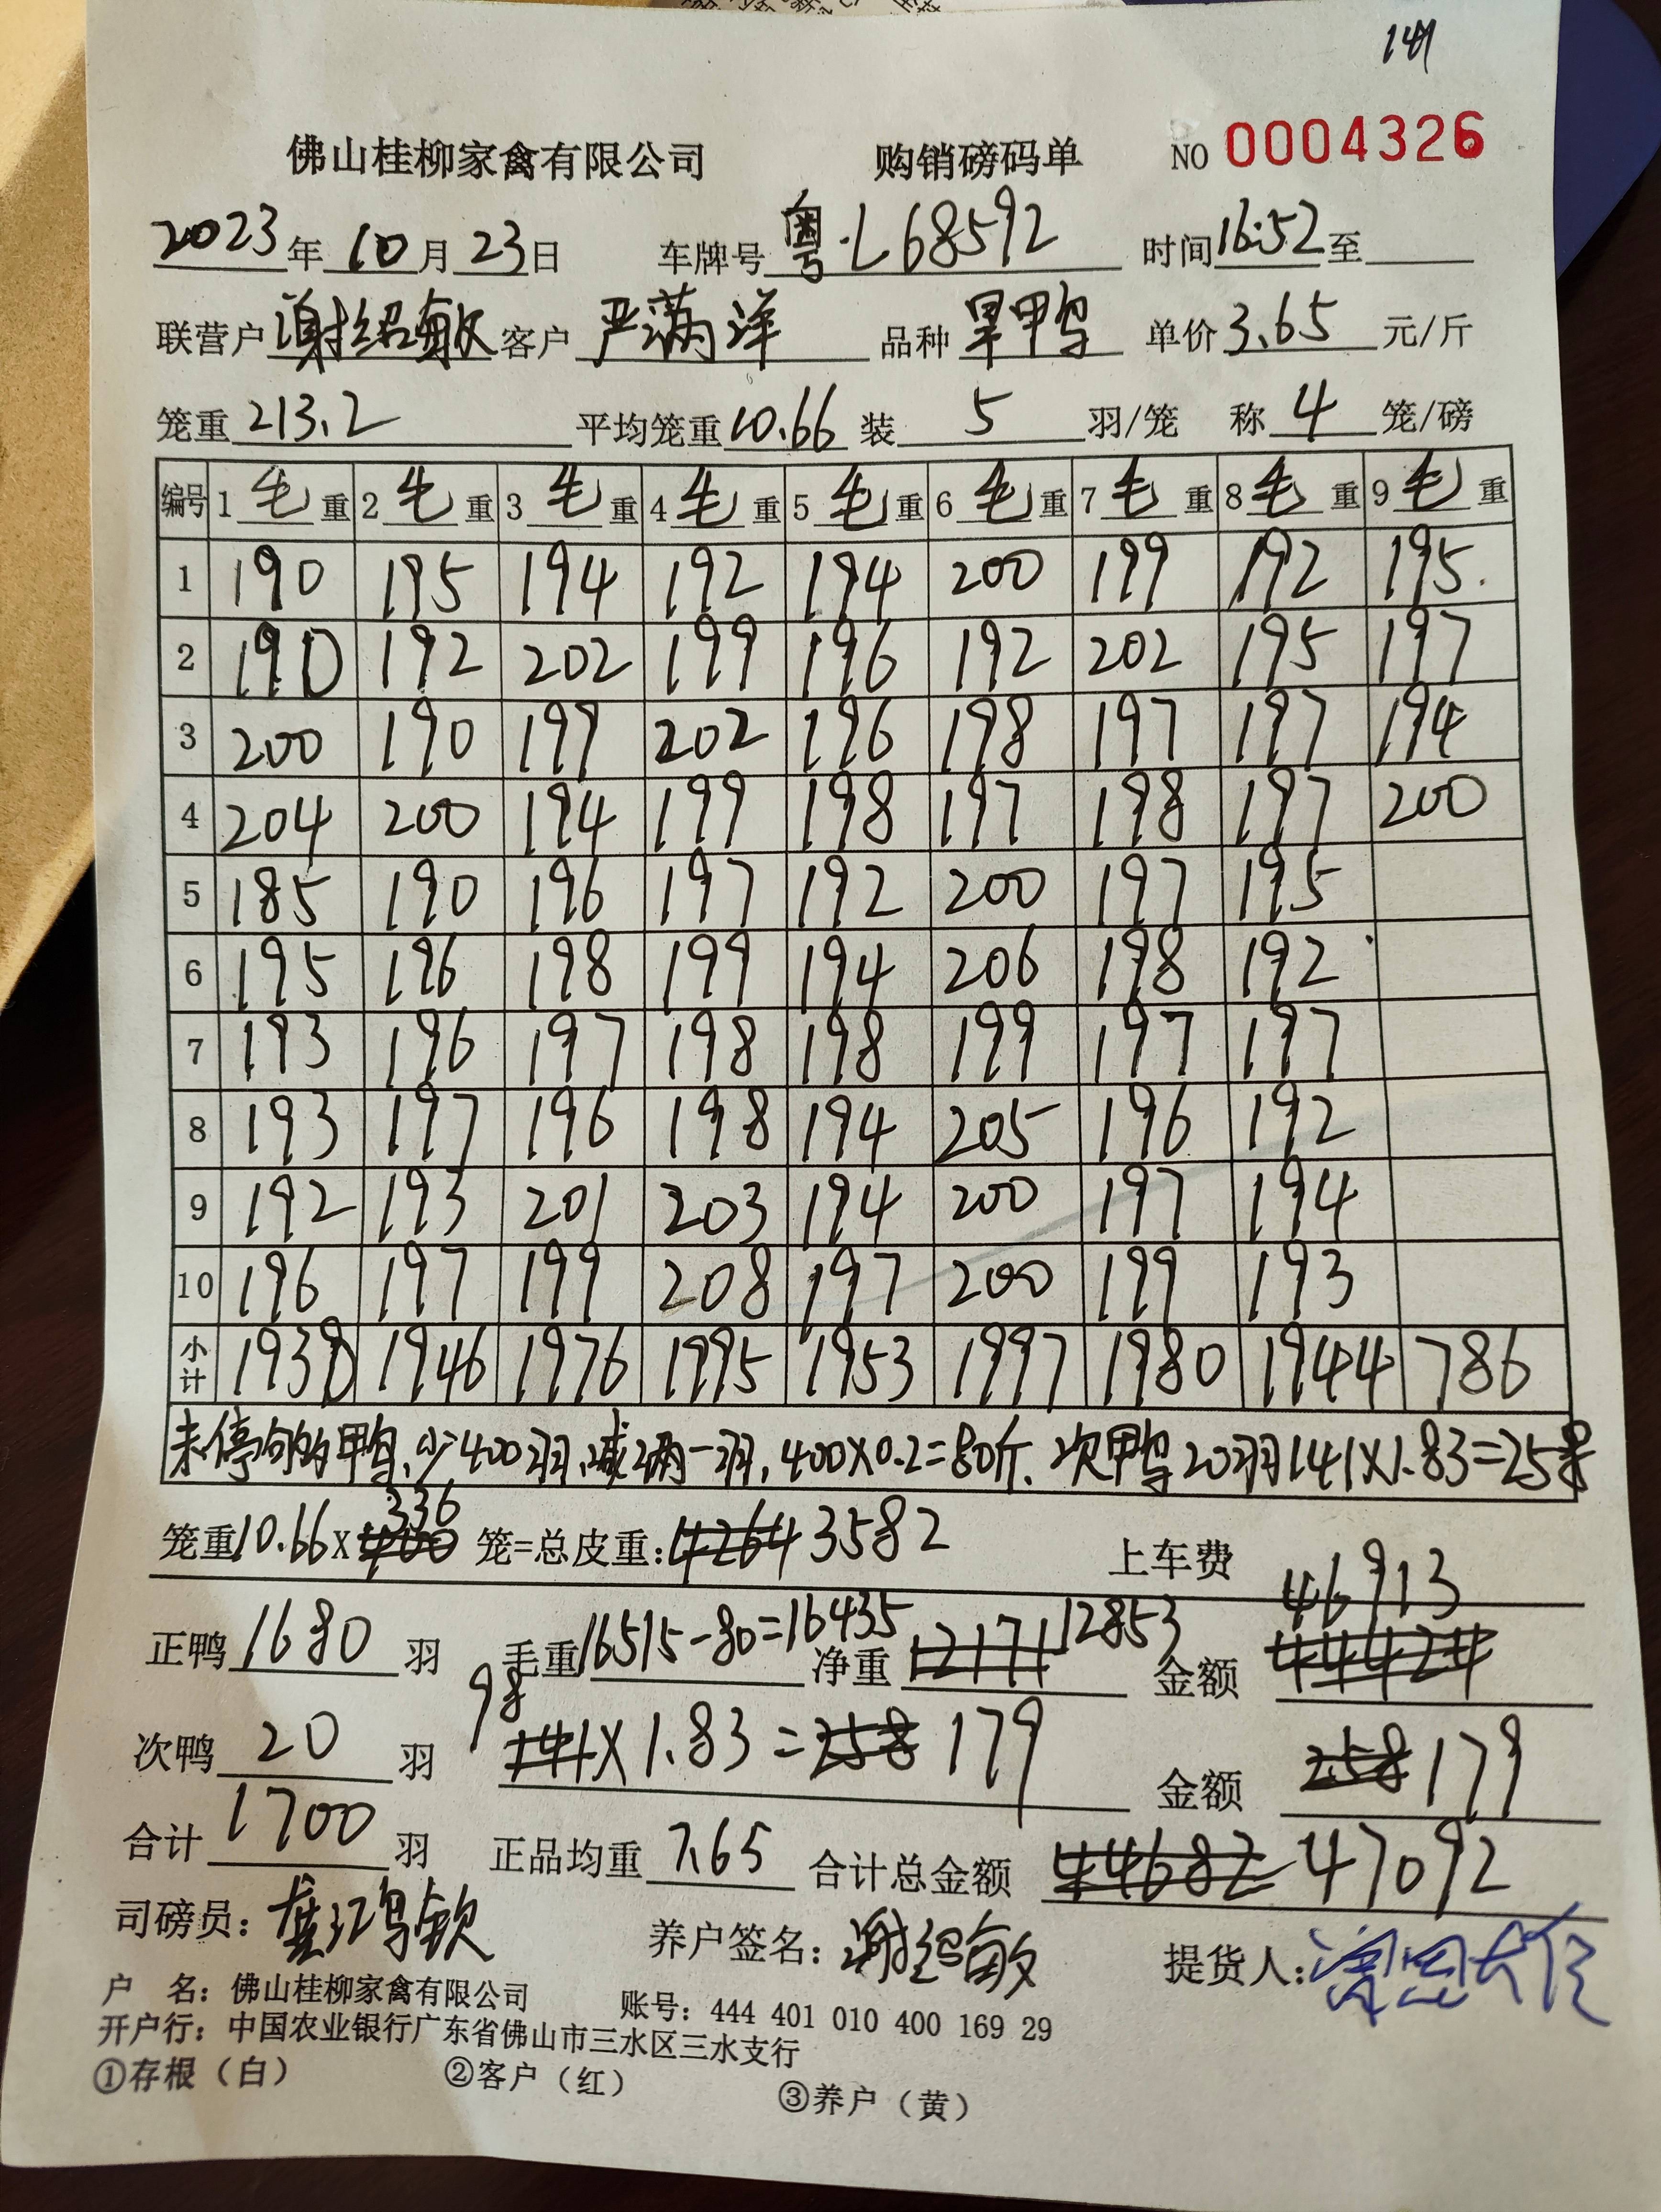 141
佛山桂柳家禽有限公司 购销磅码单 NO 0004326
2023年10月23日 车牌号 粤·L68592 时间16:52至
联营户 谢绍敏 客户 严满洋 品种 旱鸭 单价3.65元/斤
笼重213.2 平均笼重10.66 装 5 羽/笼 称 4 笼/磅
编号 1毛重 2毛重 3毛重 4毛重 5毛重 6毛重 7毛重 8毛重 9毛重
1 190 195 194 192 194 200 199 192 195.
2 190 192 202 199 196 192 202 195 197
3 200 190 199 202 196 198 197 197 194
4 204 200 194 199 198 197 198 197 200
5 185 190 196 197 192 200 197 195
6 195 196 198 199 194 206 198 192
7 193 196 197 198 198 199 197 197
8 193 197 196 198 194 205 196 192
9 192 193 201 203 194 200 197 194
10 196 197 199 208 197 200 199 193
小计 1938 1946 1976 1995 1953 1997 1980 1944 786
未停饲的鸭,少400羽,减2两一羽,400×0.2=80斤. 次鸭20羽141×1.83=258
笼重10.66×400 336 笼=总皮重:4264 3582 上车费
正鸭1680羽 毛重16515-80=16435 净重12171 12853 金额 44424 46913
次鸭 20 羽 141 98 ×1.83=258 179 金额 258 179
合计 1700 羽 正品均重 7.65 合计总金额 44682 47092
司磅员: 养户签名:谢绍敏 提货人:
户 名:佛山桂柳家禽有限公司 账号:444 401 010 400 169 29
开户行:中国农业银行广东省佛山市三水区三水支行
①存根(白) ②客户(红) ③养户(黄)